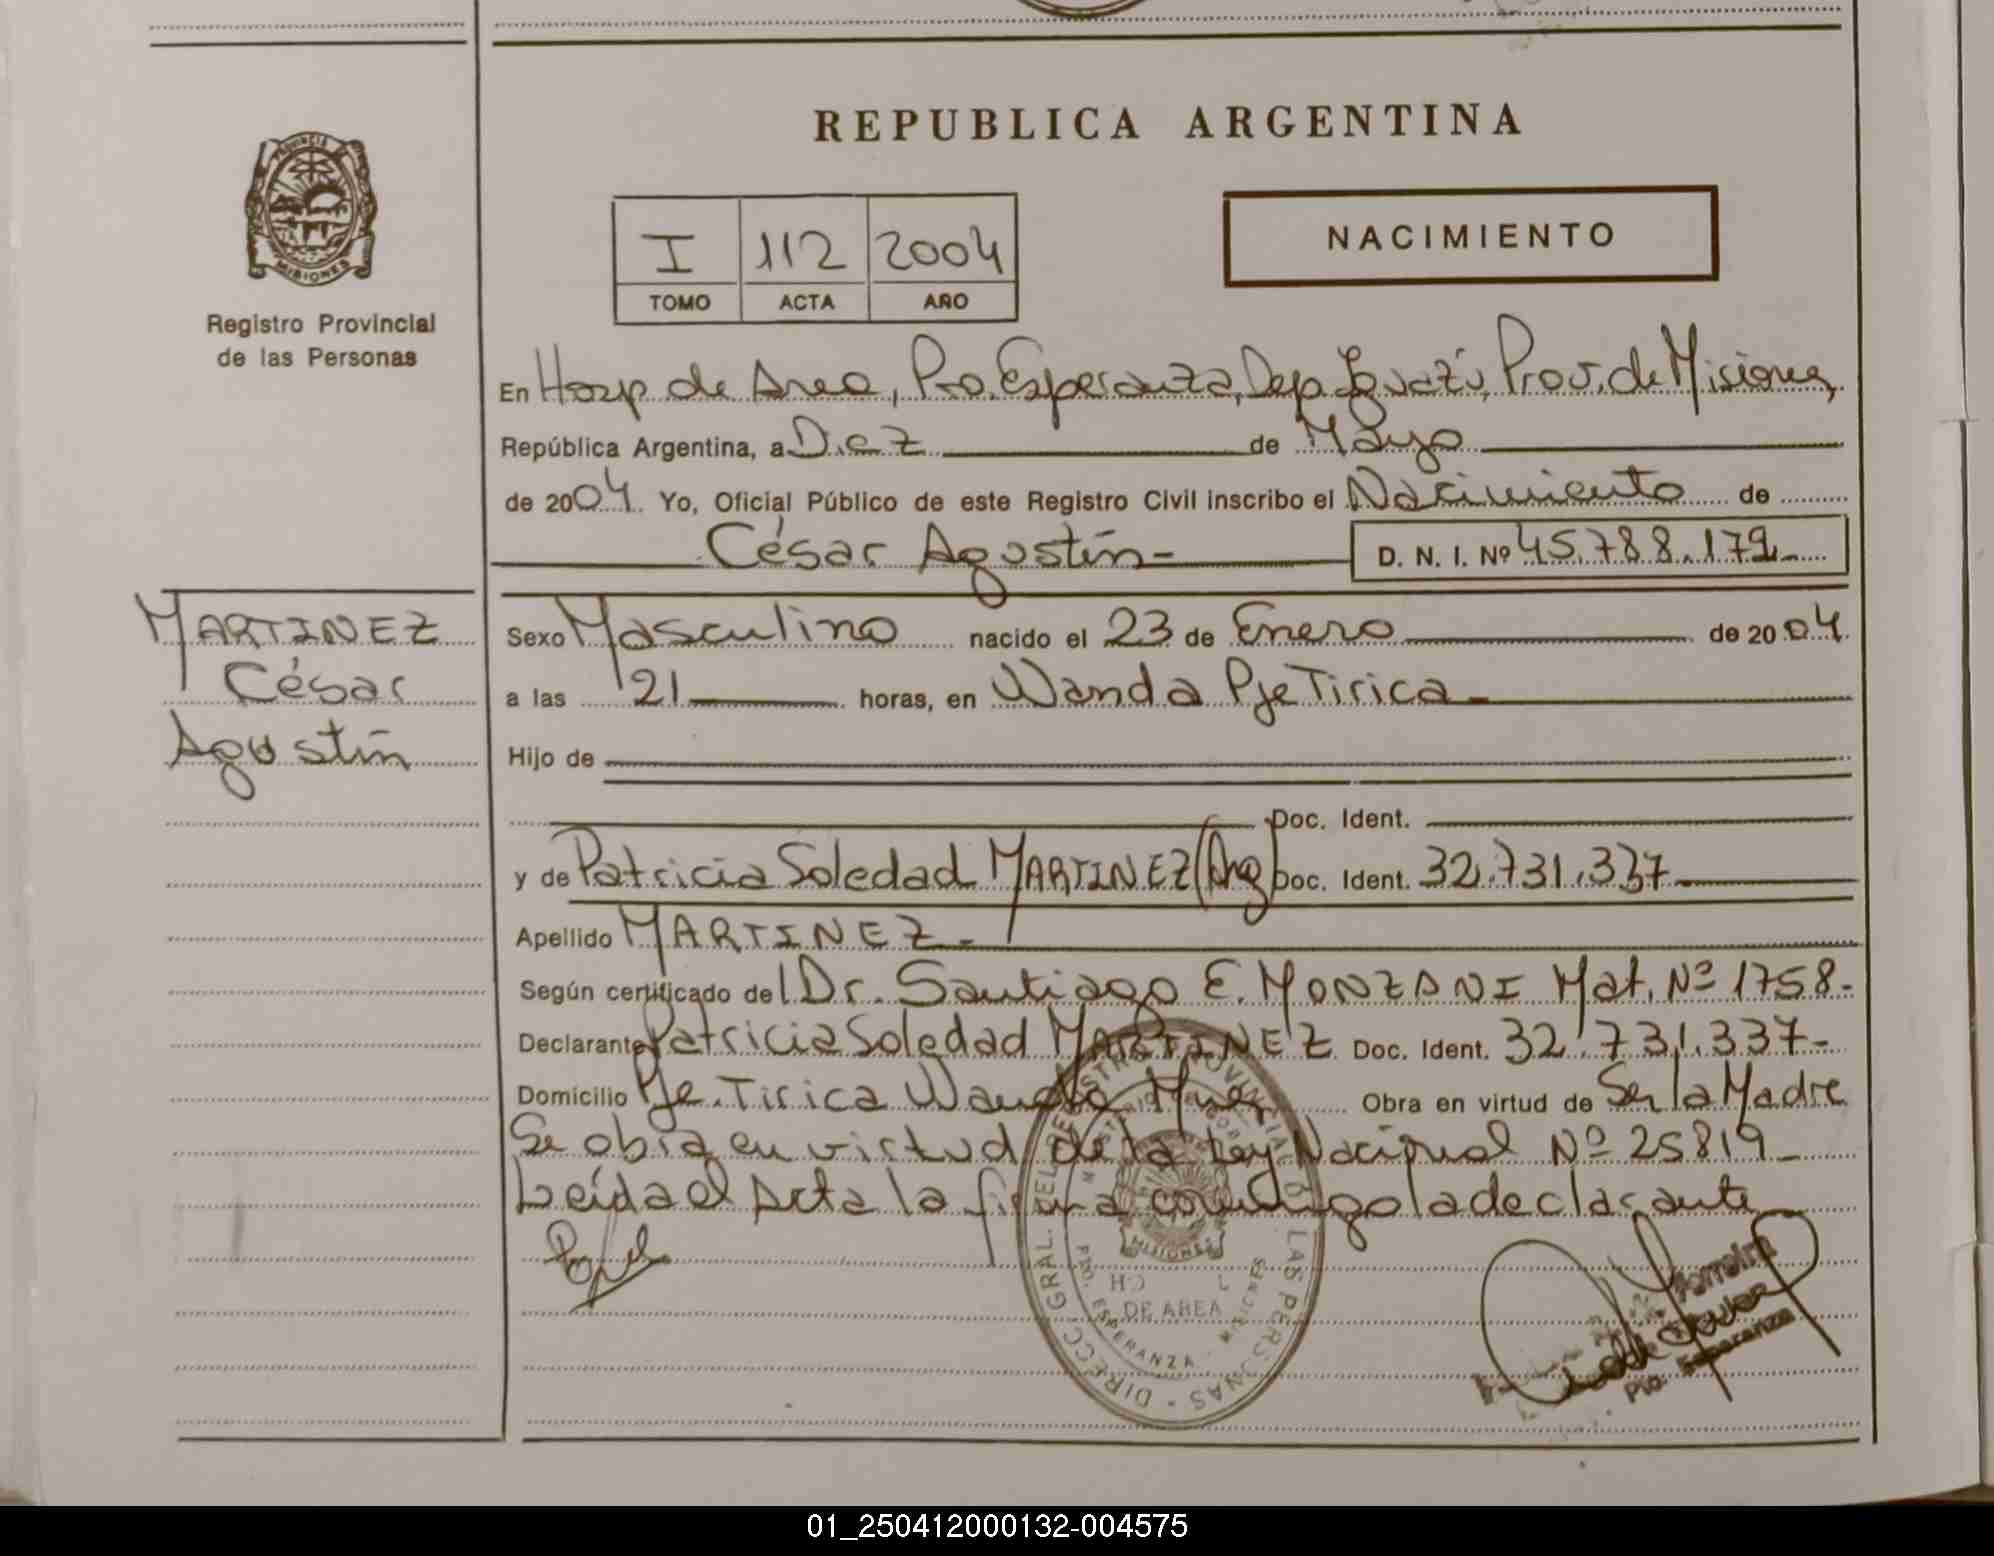 REPUBLICA ARGENTINA
PROVINCIA DE
MISIONES
Registro Provincial
de las Personas
I 112 2004
TOMO ACTA AÑO
NACIMIENTO
En Hosp de Area, Pto. Esperanza, Dep. Iguazú, Prov. de Misiones,
República Argentina, a Diez de Mayo
de 2004. Yo, Oficial Público de este Registro Civil inscribo el Nacimiento de
César Agustín- D. N. I. Nº 45.788.179-
MARTINEZ
César
Agustín
Sexo Masculino nacido el 23 de Enero de 2004
a las 21 horas, en Wanda Pje Tirica-
Hijo de
Doc. Ident.
y de Patricia Soledad MARTINEZ (Arg) Doc. Ident. 32.731.337
Apellido MARTINEZ-
Según certificado del Dr. Santiago E. MONZANI Mat. Nº 1758-
Declarante Patricia Soledad MARTINEZ Doc. Ident. 32.731.337-
Domicilio Pje. Tirica Wanda Mnes Obra en virtud de Ser la Madre
Se obra en virtud de la Ley Nacional Nº 25819-
Leída el Acta la firma conmigo la declarante
DIRECC. GRAL. DEL REGISTRO PROVINCIAL DE LAS PERSONAS
MISIONES
DE AREA
PTO. ESPERANZA - MISIONES
Ferreira
Pto. Esperanza
01_250412000132-004575